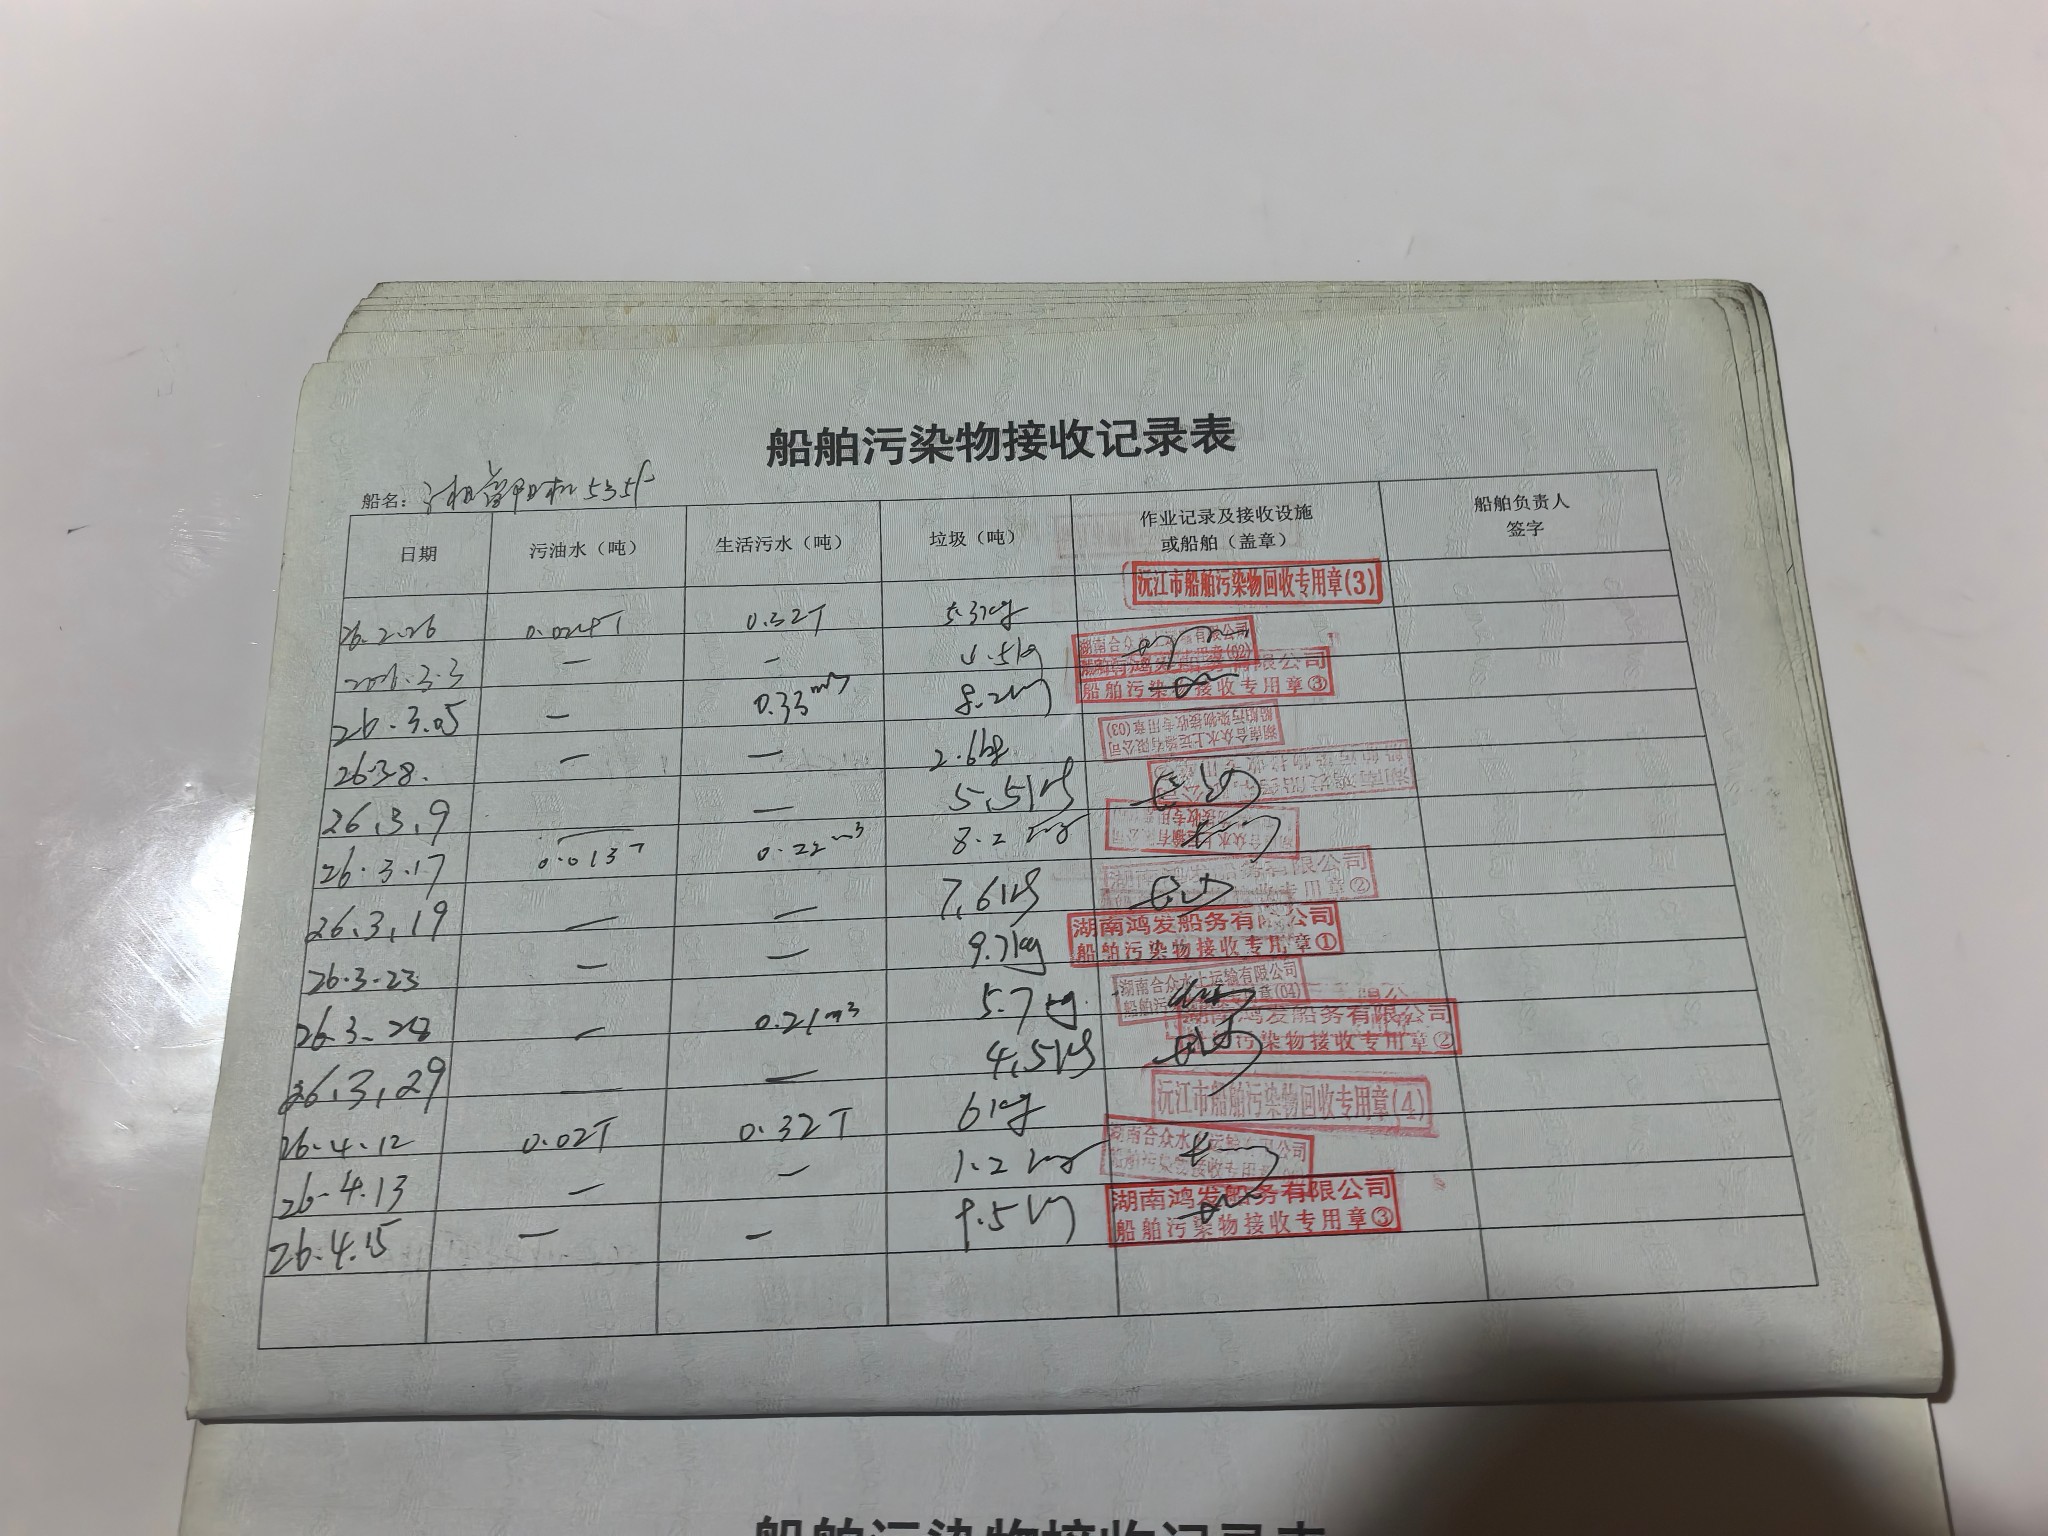 船舶污染物接收记录表
船名： 5355
日期 污油水（吨） 生活污水（吨） 垃圾（吨） 作业记录及接收设施或船舶（盖章） 船舶负责人签字
26.2.26 0.024T 0.32T 5.3kg 沅江市船舶污染物回收专用章(3)
2026.3.3 — — 4.5kg 湖南合众水上运输有限公司
26.3.05 — 0.33m³ 8.2kg 船舶污染物接收专用章③
26.3.8. — — 2.6kg 湖南合众水上运输有限公司 船舶污染物接收专用章(03)
26.3.9 — — 5.5kg
26.3.17 0.013T 0.22m³ 8.2kg
26.3.19 — — 7.6kg 船务有限公司 接收专用章②
26.3.23 — — 9.7kg 湖南鸿发船务有限公司 船舶污染物接收专用章①
26.3.28 — 0.21m³ 5.7kg 湖南合众水上运输有限公司 (04)
26.3.29 — — 4.5kg 鸿发船务有限公司 污染物接收专用章②
26.4.12 0.02T 0.32T 6kg 沅江市船舶污染物回收专用章(4)
26.4.13 — — 1.2kg 湖南合众水上运输有限公司
26.4.15 — — 9.5kg 湖南鸿发船务有限公司 船舶污染物接收专用章③
船舶污染物接收记录表